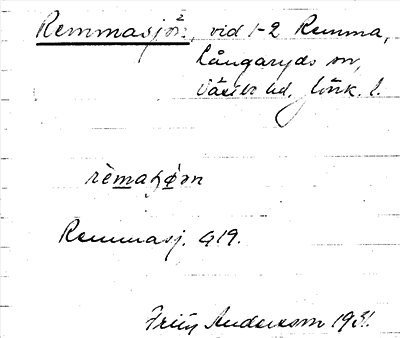 Remmasjön, vid 1-2 Remma,
Långaryds sn,
Västbo hd, Jönk. l.
rèmaɧø̀n
Remmasj. G19.
Fritz Andersson 1931.